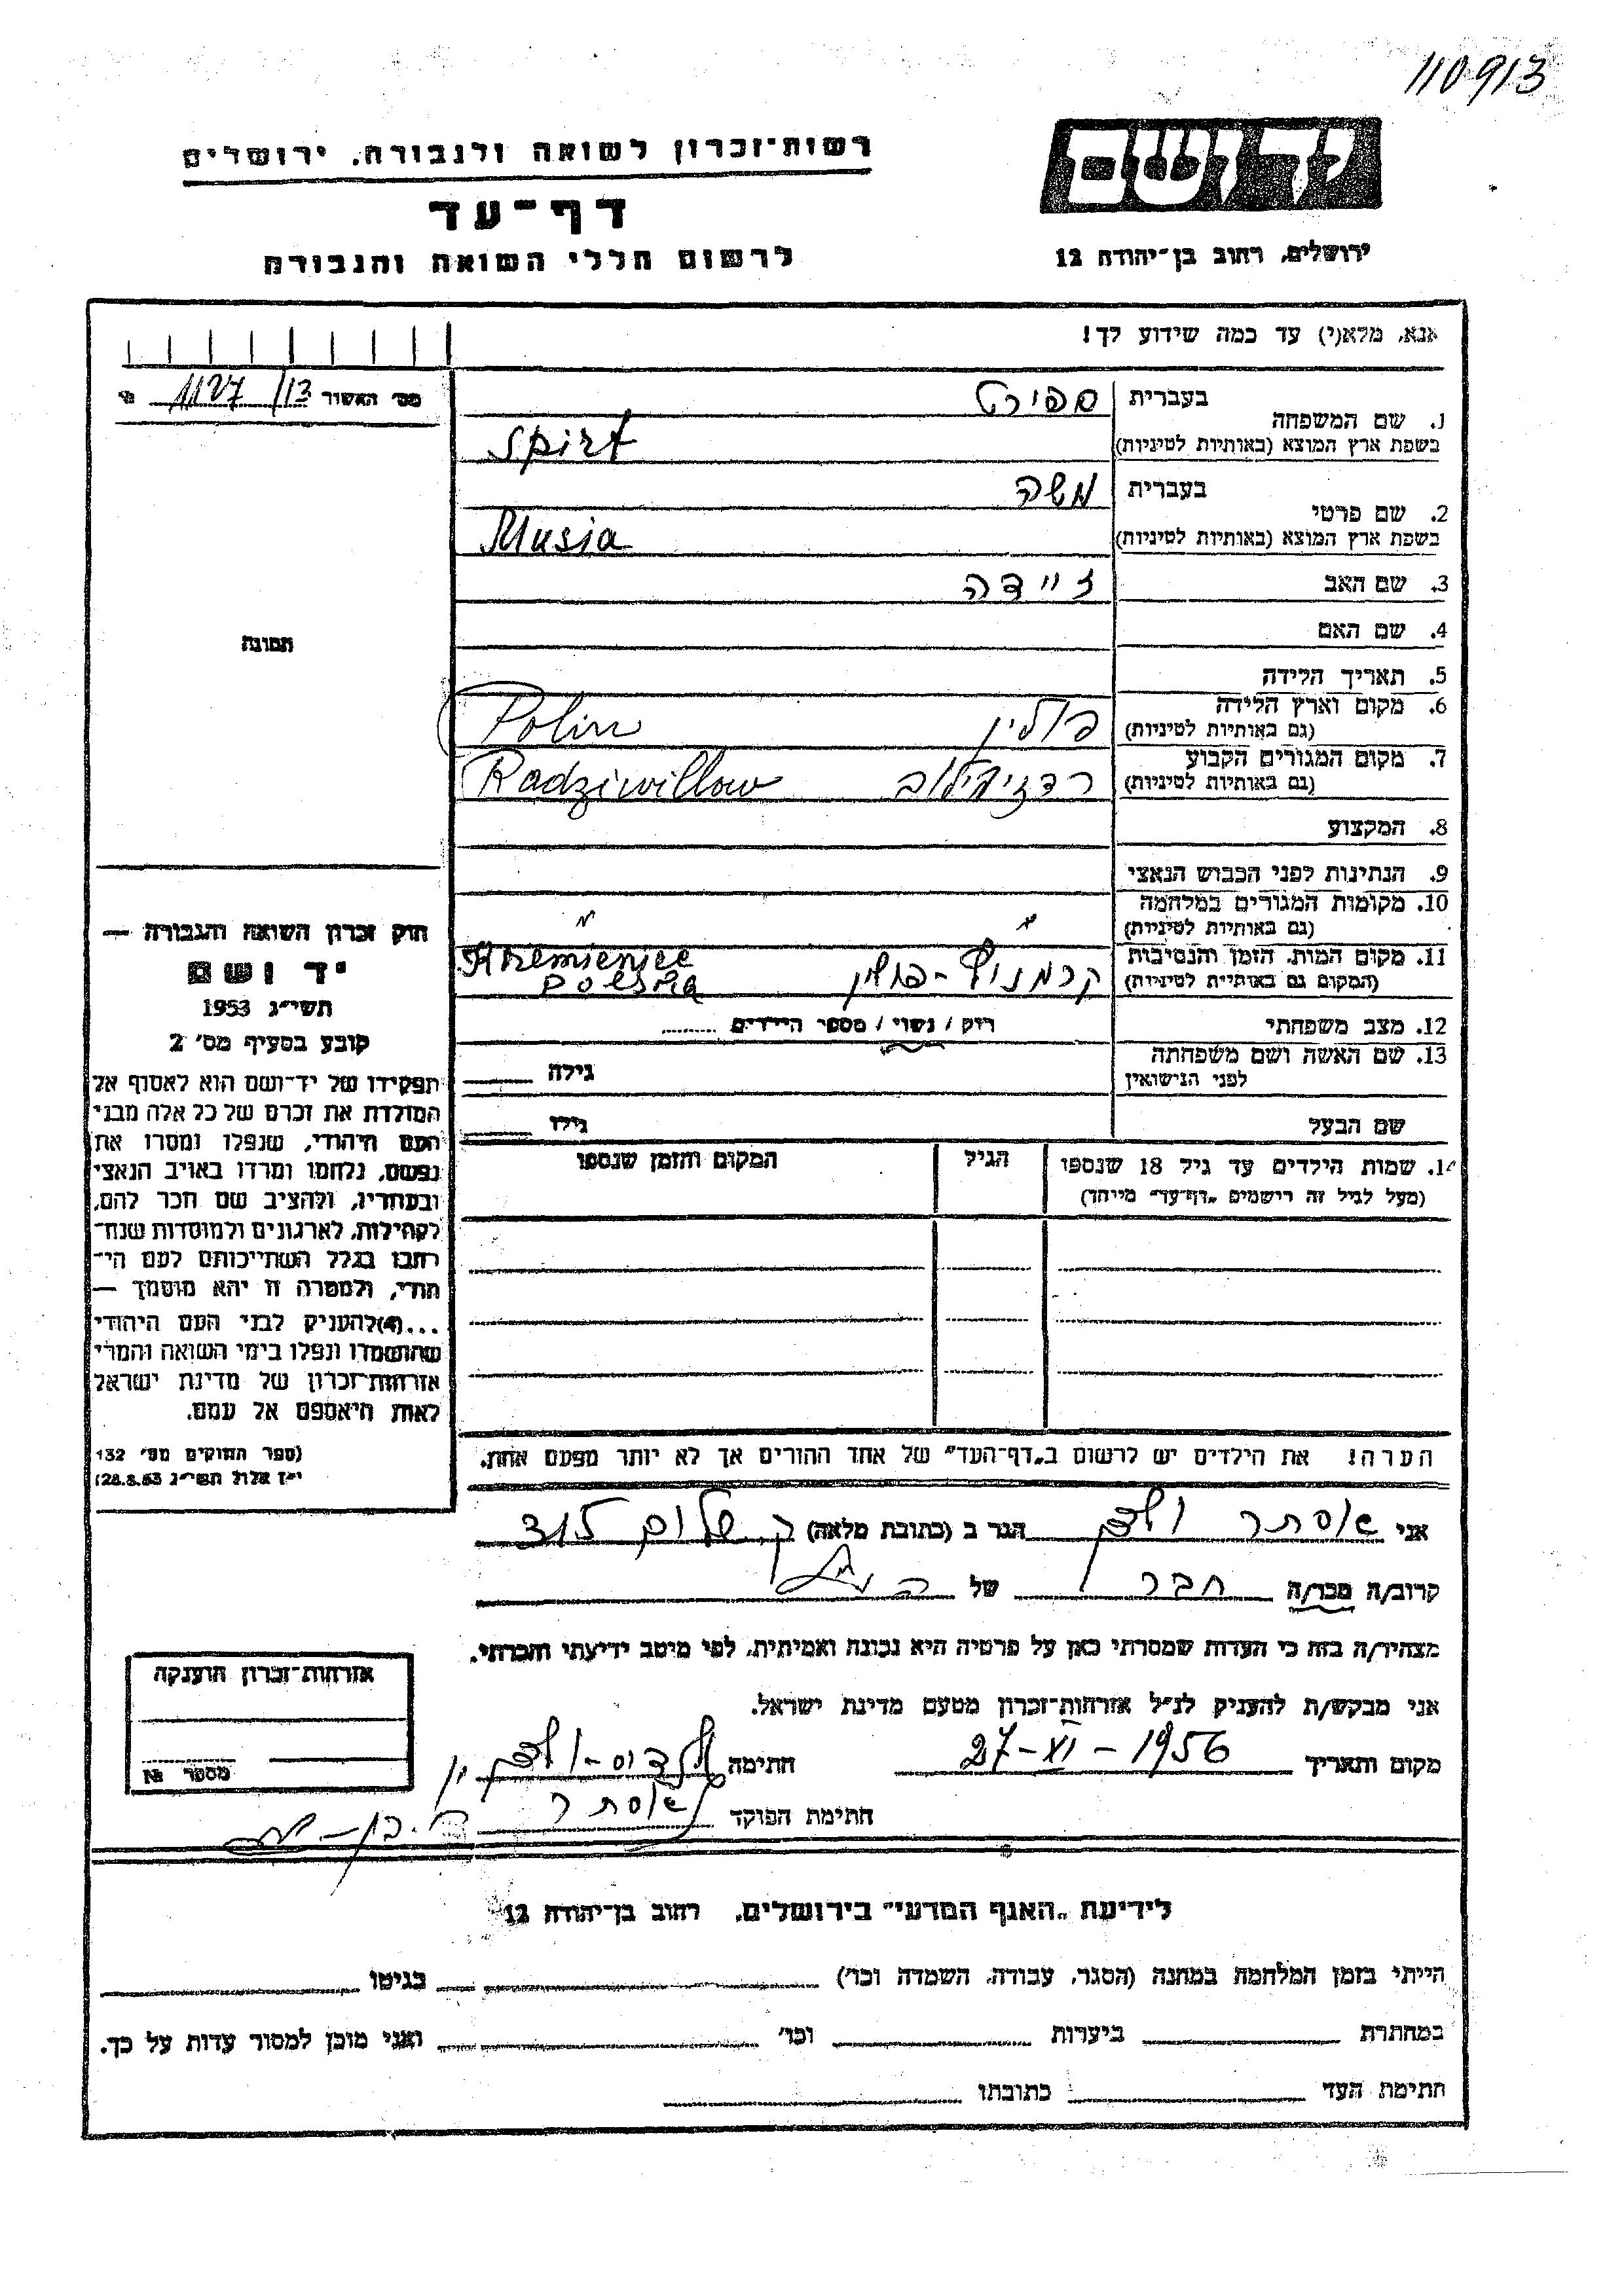 110913
רשות־זכרון לשואה ולגבורה, ירושלים
דף־עד
לרשום חללי השואה והגבורה
יד ושם
ירושלים, רחוב בן־יהודה 12
אנא, מלא(י) עד כמה שידוע לך!
מס׳ האשור 1127/13
1. שם המשפחה בעברית ספירט
בשפת ארץ המוצא (באותיות לטיניות) Spirt
2. שם פרטי בעברית משה
בשפת ארץ המוצא (באותיות לטיניות) Musia
3. שם האב זיידה
4. שם האם
תמונה
5. תאריך הלידה
6. מקום וארץ הלידה (גם באותיות לטיניות) פולין Polin
7. מקום המגורים הקבוע (גם באותיות לטיניות) רדזיווילוב Radziwillow
8. המקצוע
9. הנתינות לפני הכבוש הנאצי
10. מקומות המגורים במלחמה (גם באותיות לטיניות) " "
11. מקום המות, הזמן והנסיבות (המקום גם באותיות לטיניות) קרמניץ - פולין Kremieniec Polska
12. מצב משפחתי רווק / נשוי / מספר הילדים
13. שם האשה ושם משפחתה לפני הנישואין גילה
שם הבעל גילו
14. שמות הילדים עד גיל 18 שנספו (מעל לגיל זה רישמים „דף־עד״ מיוחד) הגיל המקום והזמן שנספו
חוק זכרון השואה והגבורה —
יד ושם
תשי״ג 1953
קובע בסעיף מס׳ 2
תפקידו של יד־ושם הוא לאסוף אל
המולדת את זכרם של כל אלה מבני
העם היהודי, שנפלו ומסרו את
נפשם, נלחמו ומרדו באויב הנאצי
ובעוזריו, ולהציב שם וזכר להם,
לקהילות, לארגונים ולמוסדות שנח־
רבו בגלל השתייכותם לעם הי־
הודי, ולמטרה זו יהא מוסמך —
...(4) להעניק לבני העם היהודי
שהושמדו ונפלו בימי השואה והמרי
אזרחות־זכרון של מדינת ישראל
לאות היאספם אל עמם.
(ספר החוקים מס׳ 132
י״ז אלול תשי״ג 28.8.53)
הערה! את הילדים יש לרשום ב„דף־העד״ של אחד ההורים אך לא יותר מפעם אחת.
אני אסתר הגר ב (כתובת מלאה)
קרוב/ה מכר/ה חבר של
מצהיר/ה בזה כי העדות שמסרתי כאן על פרטיה היא נכונה ואמיתית, לפי מיטב ידיעתי והכרתי.
אני מבקש/ת להעניק לנ״ל אזרחות־זכרון מטעם מדינת ישראל.
מקום ותאריך 27-XI-1956 חתימה
אסתר
חתימת הפוקד
אזרחות־זכרון הוענקה
מספר №
לידיעת „האגף המדעי״ בירושלים, רחוב בן־יהודה 12
הייתי בזמן המלחמה במחנה (הסגר, עבודה, השמדה וכו׳) בגיטו
במחתרת ביערות וכו׳ ואני מוכן למסור עדות על כך.
חתימת העד כתובתו